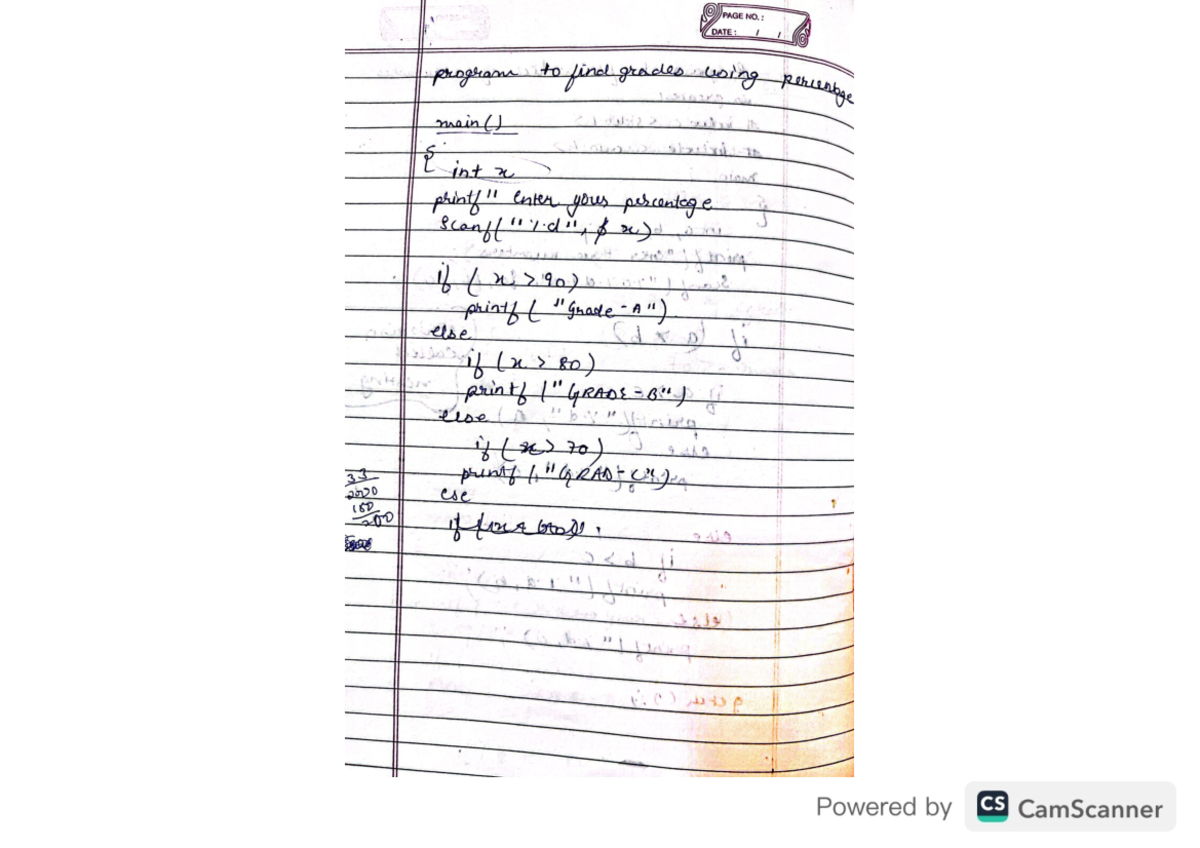 PAGE NO.:
DATE: / /
program to find grades using percentage
main()
{
int x
printf" enter your percentage
scanf("%d", $ x)
if (x >90)
printf( "Grade-A")
else
if (x > 80)
printf ("GRADE-B")
else
if (x> 70)
printf (,"GRAD- C")
ese
if
33
2020
160
200
Powered by CS CamScanner